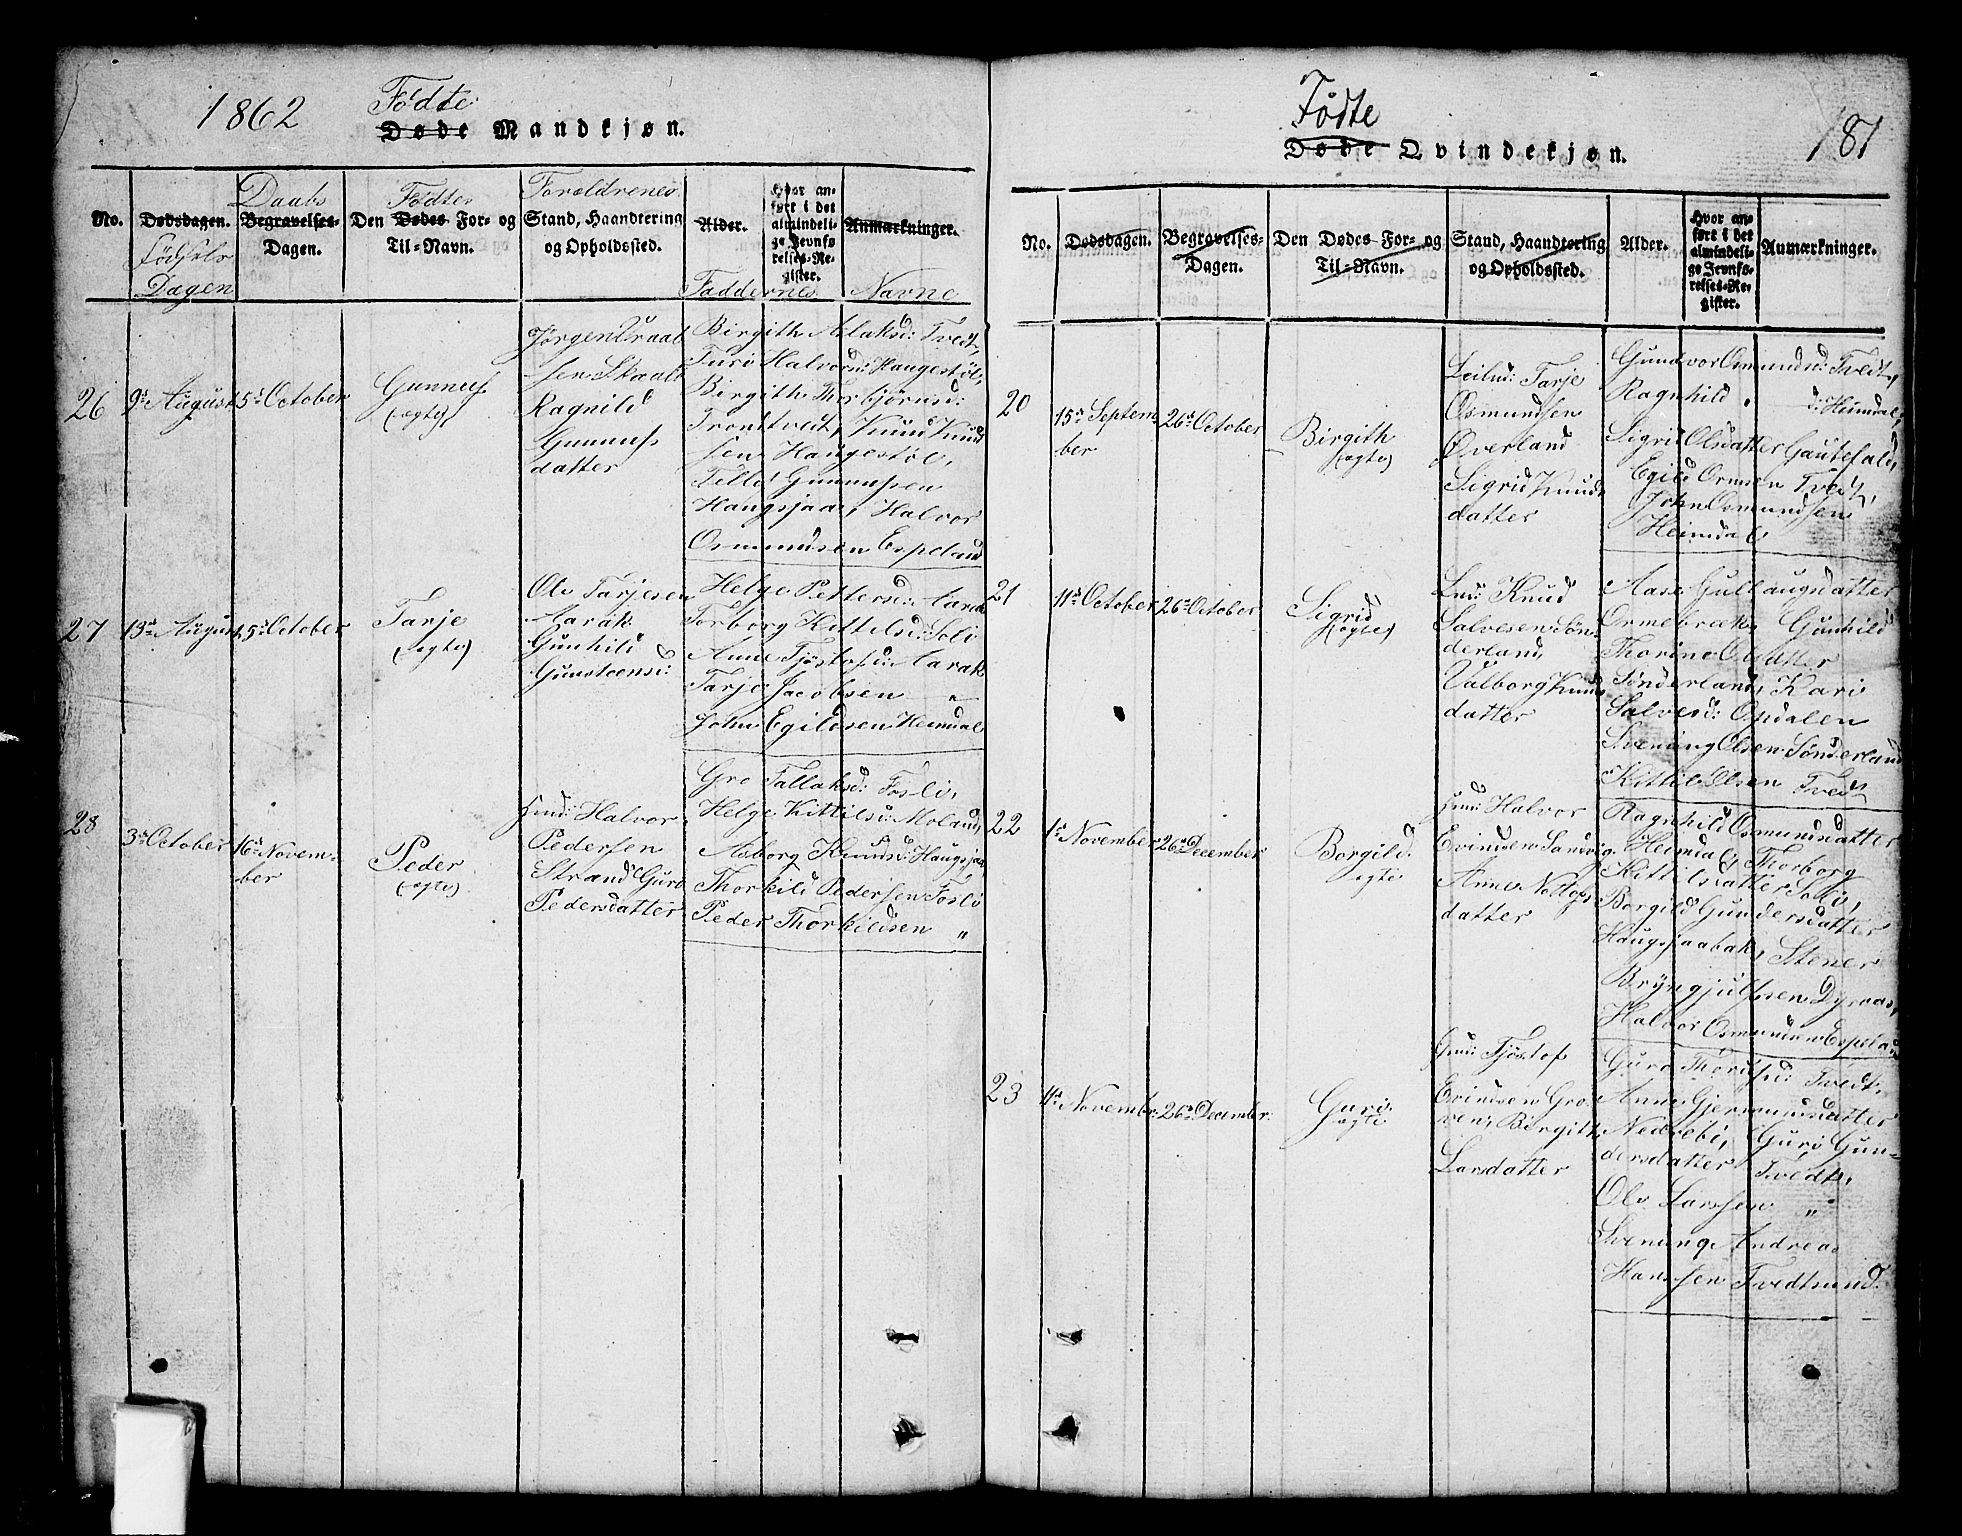 1862
Fødte
Døde Mandkjøn.
No.
Dødsdagen.
Fødsels
Dagen
Daabs
Begravelses-
Dagen.
Fødtes
Den Dødes For- og
Til-Navn.
Forældrenes
Stand, Haandtering
og Opholdssted.
Alder.
Hvor an-
ført i det
almindeli-
ge Jevnfø
relses-Re-
gister.
Anmærkninger.
Faddernes Navne
26
9de August
5te October
Gunnuf
(ægte)
Jørgen Graab
sen Skaalt
Ragnild
Gunnufs
datter
Birgith Aslaksd: Tvedt,
Turo Halvorsd: Haugestøl,
Birgith Thorbjørnsd:
Trontveit, Knud Knud
sen Haugestøl,
Tellef Gunnufsen
Haugsjaa, Halvor
Osmundsen Espeland
27
13de August
5te October
Tarje
(ægte)
Olv Tarjesen
Aarak
Gunhild
Gunsteensd:
Helge Pettersd: Aarak
Torborg Kittilsd: Soli
Anne Tjøstofsd: Aarak
Tarje Jacobsen "
John Egildsen Heimdal
28
3de October
16de Novem-
ber
Peder
(ægte)
Huusmd: Halvor
Pedersen
Strand Guro
Pedersdatter
Gro Tallaksd: Fosli,
Helge Kittilsd: Moland,
Asborg Knudsd: Haugsjaa
Thorkild Pedersen Fosli
Peder Thorkildsen "
181
Fødte
Døde Qvindekjøn.
No.
Dødsdagen.
Begravelses-
Dagen.
Den Dødes For- og
Til-Navn.
Stand, Haandtering
og Opholdssted.
Alder.
Hvor an-
ført i det
almindeli-
ge Jevnfø-
relses-Re-
gister.
Anmærkninger.
20
15de Septem-
ber
26de October
Birgith
(ægte)
Leilnd: Tarje
Osmundsen
Øverland
Sigrid Knuds
datter
Gundvor Osmundsd: Tvedt,
Ragnhild " d: Heimdal,
Sigrid Olsdatter Gautefald,
Egild Ormsen Tvedt,
John Osmundsen
Heimdal
21
11te October
26de October
Sigrid
(ægte)
Knud
Salvesen Søn-
derland,
Valborg Knuds
datter
Aase Gullaugsdatter
Ormebræk, Gunhild
Thorine Olsdatter
Sønderland, Kari
Salvesd: Opdalen
Svenung Olsen Sønderland
Kittil Olsen Tvedt
22
1ste November
26de December
Borgild
ægte
Huusmd: Halvor
Evindsen Sandvig
Anne Nottofs
datter
Ragnhild Osmundsdatter
Heimdal, Thorborg
Kittilsdatter Soli,
Borgild Gundersdatter
Haugsjaabak, Stener
Bryngjulfsen Dyraas,
Halvor Osmundsen Espeland
23
11te Novembr.
26de December
Guro
ægte
Huusmd: Tjøstof
Evindsen Gro-
ven, Birgith
Larsdatter
Guro Thordsd: Tvedt,
Anne Gjermundsdatter
Nedrebø, Guro Gun-
dersdatter Tvedt,
Olv Larssen "
Svenung Andreas
Hanssen Tvedtsund